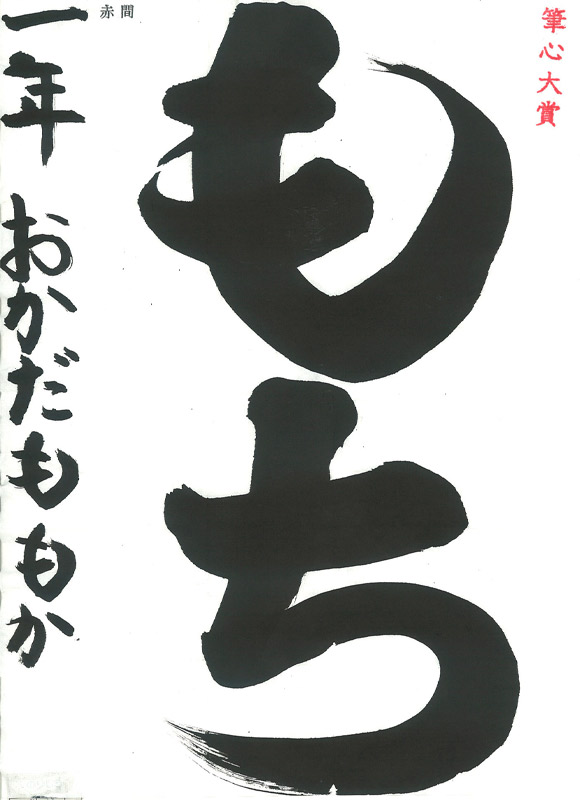 筆心大賞
もち
赤間
一年 おかだももか